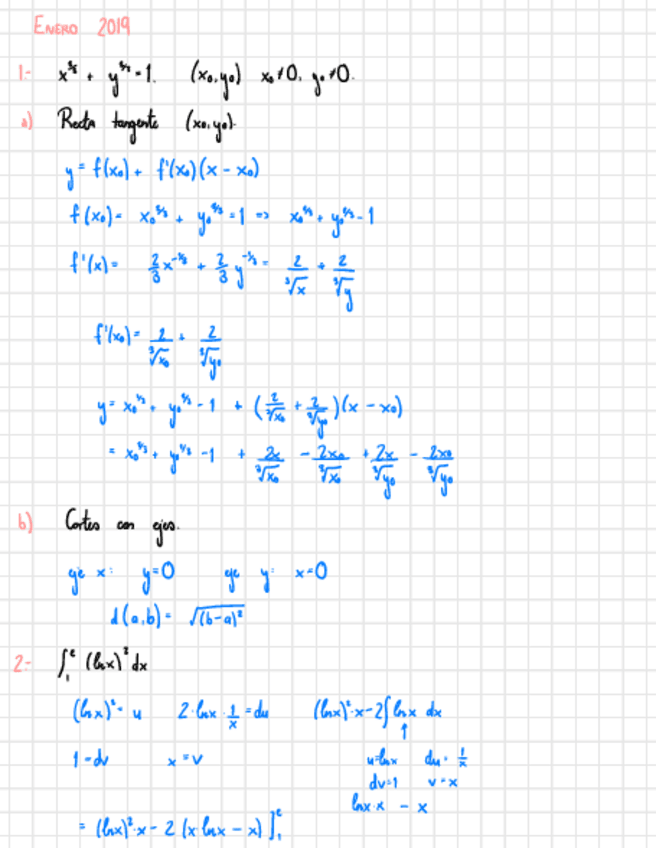 ENERO 2019
1.- x^{2/3} + y^{2/3} = 1. (x₀,y₀) x₀≠0, y₀≠0.
a) Recta tangente (x₀,y₀).
y = f(x₀) + f'(x₀)(x - x₀)
f(x₀) = x₀^{2/3} + y₀^{2/3} = 1 => x₀^{2/3} + y₀^{2/3} - 1
f'(x) = 2/3 x^{-1/3} + 2/3 y^{-1/3} = 2/∛x + 2/∛y
f'(x₀) = 2/∛x₀ + 2/∛y₀
y = x₀^{2/3} + y₀^{2/3} - 1 + (2/∛x₀ + 2/∛y₀)(x - x₀)
= x₀^{2/3} + y₀^{2/3} - 1 + 2x/∛x₀ - 2x₀/∛x₀ + 2x/∛y₀ - 2x₀/∛y₀
b) Cortes con ejes.
eje x: y=0 eje y: x=0
d(a,b) = √(b-a)²
2- ∫₁ᵉ (lnx)² dx
(lnx)² = u 2·lnx·1/x = du (lnx)²·x - 2∫lnx dx
↑
1 = dv x = v u=lnx du = 1/x
dv=1 v=x
lnx·x - x
= (lnx)²·x - 2 (x·lnx - x) ]₁ᵉ